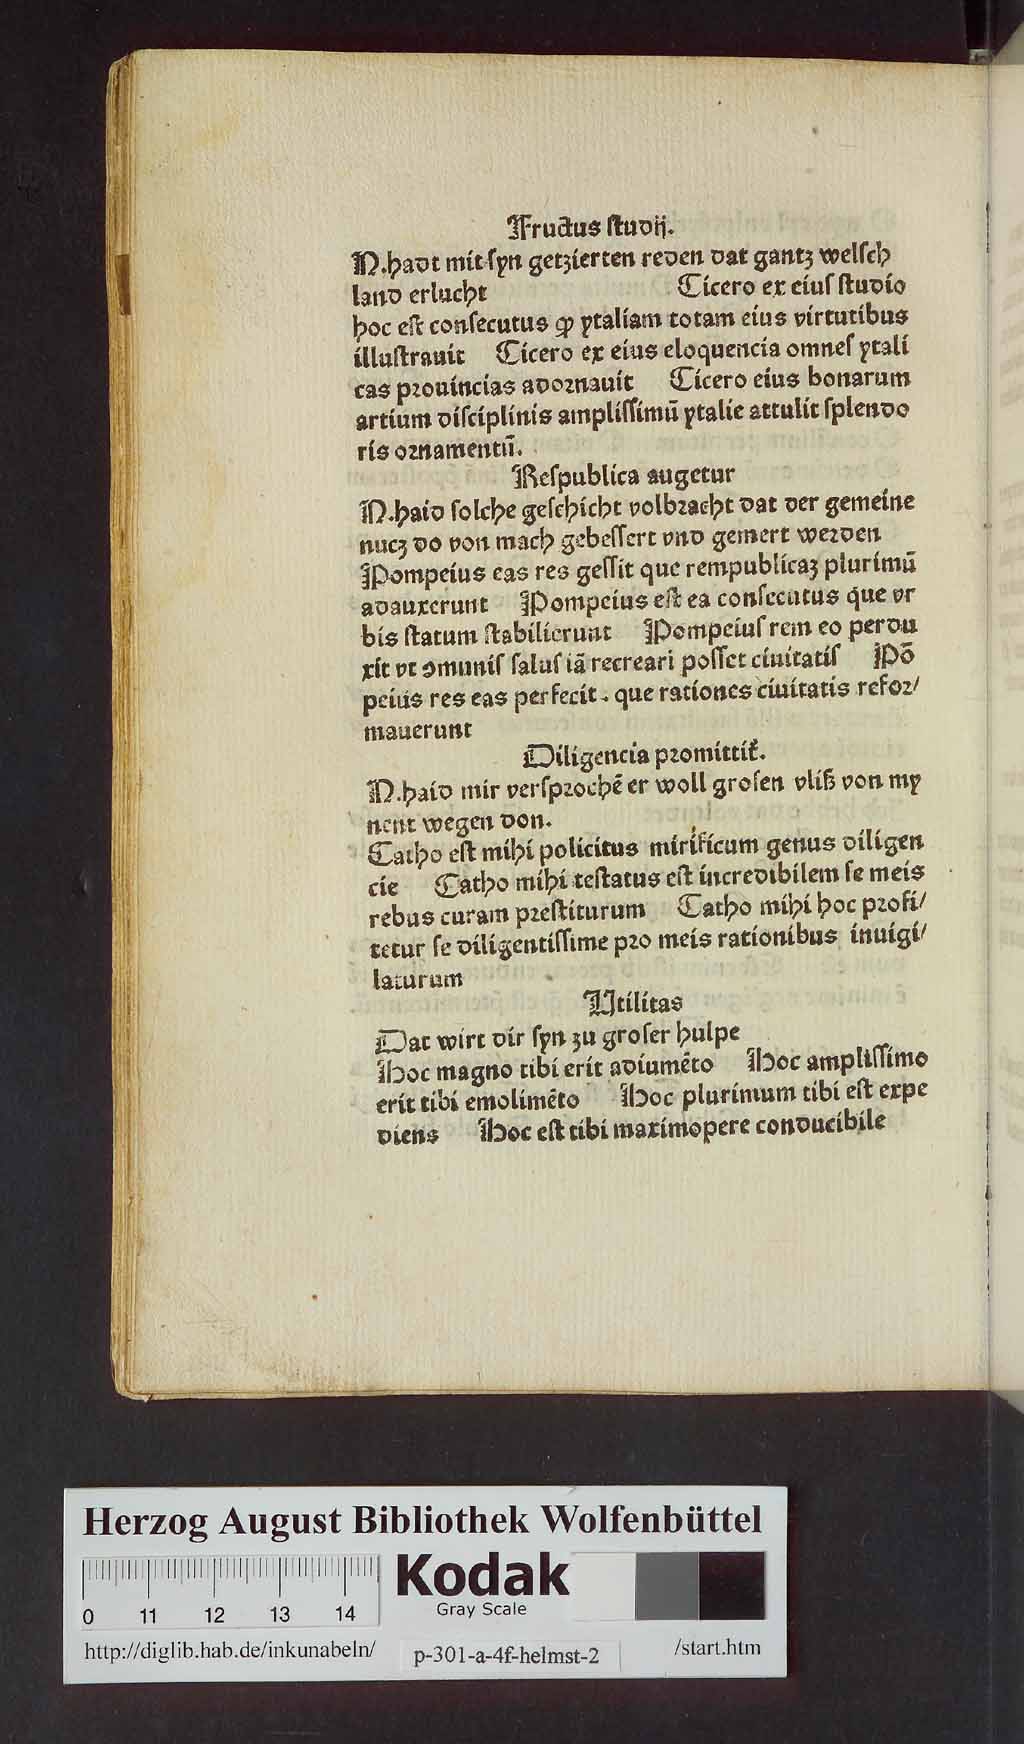 Fructus ſtudij.
N.hadt mit ſyn getzierten reden dat gantz welſch
land erlucht Cicero ex eiuſ ſtudio
hoc eſt conſecutus ꝙ ytaliam totam eius virtutibus
illuſtrauit Cicero ex eius eloquencia omneſ ytali
cas prouincias adornauit Cicero eius bonarum
artium diſciplinis ampliſſimū ytalie attulit ſplendo
ris ornamentū.
Reſpublica augetur
N.haid ſolche geſchicht volbracht dat der gemeine
nucz do von mach gebeſſert vnd gemert werden
Pompeius eas res geſſit que rempublicaꝫ plurimū
adauxerunt Pompeius eſt ea conſecutus q̄ue vr
bis ſtatum ſtabilierunt Pompeiuſ rem eo perdu
xit vt ꝯmuniſ ſaluſ iā recreari poſſet ciuitatiſ Pō
peius res eas perfecit. que rationes ciuitatis refor/
mauerunt
Diligencia promittit̉.
N.haid mir verſprochē er woll groſen vliß von my
nent wegen don.
Catho eſt mihi policitus mirificum genus diligen
cie Catho mihi teſtatus eſt incredibilem ſe meis
rebus curam preſtiturum Catho mihi hoc profi/
tetur ſe diligentiſſime pro meis rationibus inuigi/
laturum
Vtilitas
Dat wirt dir ſyn zu groſer hulpe
Hoc magno tibi erit adiumēto Hoc ampliſſimo
erit tibi emolimēto Hoc plurimum tibi eſt expe
diens Hoc eſt tibi maximopere conducibile
Herzog August Bibliothek Wolfenbüttel
Kodak
Gray Scale
0 11 12 13 14
http://diglib.hab.de/inkunabeln/ p-301-a-4f-helmst-2 /start.htm